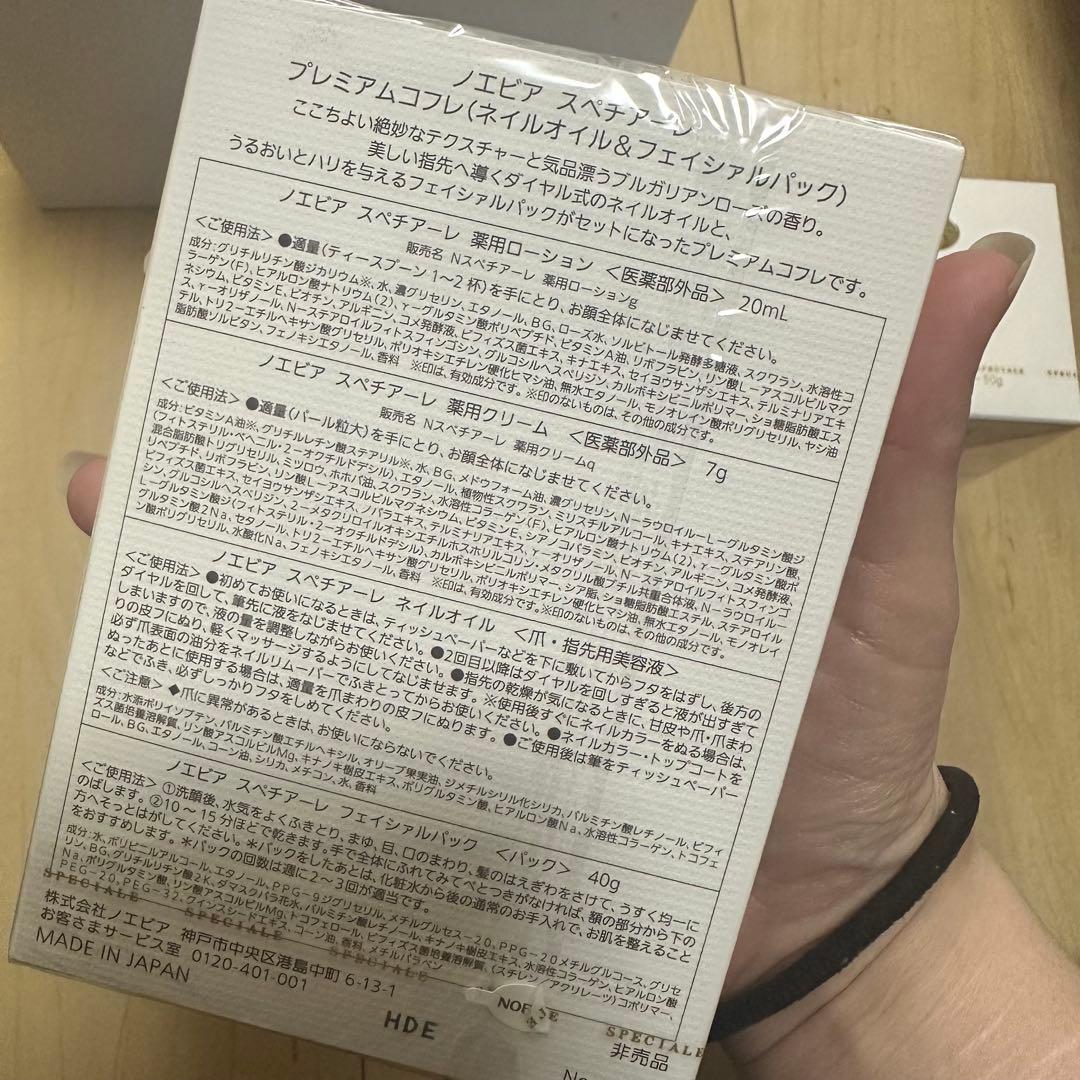 ノエビア スペチアーレ
プレミアムコフレ(ネイルオイル＆フェイシャルパック)
ここちよい絶妙なテクスチャーと気品漂うブルガリアンローズの香り。
美しい指先へ導くダイヤル式のネイルオイルと、
うるおいとハリを与えるフェイシャルパックがセットになったプレミアムコフレです。
ノエビア スペチアーレ 薬用ローション ＜医薬部外品＞ 20mL
販売名 Nスペチアーレ 薬用ローションg
＜ご使用法＞ ●適量(ティースプーン1～2杯)を手にとり、お顔全体になじませてください。
成分:グリチルリチン酸ジカリウム※、水、濃グリセリン、エタノール、BG、ローズ水、ソルビトール発酵多糖液、スクワラン、水溶性コ
ラーゲン(F)、ヒアルロン酸ナトリウム(2)、γ-グルタミン酸ポリペプチド、ビタミンA油、リボフラビン、リン酸L-アスコルビルマグ
ネシウム、ビタミンE、ビオチン、アルギニン、コメ発酵液、ビフィズス菌エキス、キナエキス、セイヨウサンザシエキス、テルミナリアエキ
ス、γ-オリザノール、N-ステアロイルフィトスフィンゴシン、グルコシルヘスペリジン、カルボキシビニルポリマー、ショ糖脂肪酸エス
テル、トリ2-エチルヘキサン酸グリセリル、ポリオキシエチレン硬化ヒマシ油、無水エタノール、モノオレイン酸ポリグリセリル、ヤシ油
脂肪酸ソルビタン、フェノキシエタノール、香料 ※印は、有効成分です。※印のないものは、その他の成分です。
ノエビア スペチアーレ 薬用クリーム ＜医薬部外品＞ 7g
販売名 Nスペチアーレ 薬用クリームq
＜ご使用法＞ ●適量(パール粒大)を手にとり、お顔全体になじませてください。
成分:ビタミンA油※、グリチルレチン酸ステアリル※、水、BG、メドウフォーム油、濃グリセリン、N-ラウロイル-L-グルタミン酸ジ
(フィトステリル・ベヘニル・2-オクチルドデシル)、エタノール、植物性スクワラン、ミリスチルアルコール、キナエキス、ステアリン酸、
混合脂肪酸トリグリセリル、ミツロウ、ホホバ油、スクワラン、水溶性コラーゲン(F)、ヒアルロン酸ナトリウム(2)、γ-グルタミン酸ポ
リペプチド、リボフラビン、リン酸L-アスコルビルマグネシウム、ビタミンE、シアノコバラミン、ビオチン、アルギニン、コメ発酵液、
ビフィズス菌エキス、セイヨウサンザシエキス、ノバラエキス、テルミナリアエキス、γ-オリザノール、N-ステアロイルフィトスフィンゴ
シン、グルコシルヘスペリジン、2-メタクリロイルオキシエチルホスホリルコリン・メタクリル酸ブチル共重合体液、N-ラウロイル-
L-グルタミン酸ジ(フィトステリル・2-オクチルドデシル)、カルボキシビニルポリマー、シア脂、ショ糖脂肪酸エステル、ステアロイル
グルタミン酸2Na、セタノール、トリ2-エチルヘキサン酸グリセリル、ポリオキシエチレン硬化ヒマシ油、無水エタノール、モノオレイ
ン酸ポリグリセリル、水酸化Na、フェノキシエタノール、香料 ※印は、有効成分です。※印のないものは、その他の成分です。
ノエビア スペチアーレ ネイルオイル ＜爪・指先用美容液＞
＜ご使用法＞ ●初めてお使いになるときは、ティッシュペーパーなどを下に敷いてからフタをはずし、後方の
ダイヤルを回して、筆先に液をなじませてください。●2回目以降はダイヤルを回しすぎると液が出すぎて
しまいますので、液の量を調整しながらお使いください。●指先の乾燥が気になるときに、甘皮や爪・爪まわ
りの皮フにぬり、軽くマッサージするようにしてなじませます。※使用後すぐにネイルカラーをぬる場合は、
必ず爪表面の油分をネイルリムーバーでふきとってからお使いください。●ネイルカラー・トップコートを
ぬったあとに使用する場合は、適量を爪まわりの皮フにぬります。●ご使用後は筆をティッシュペーパー
などでふき、必ずしっかりフタをしめてください。
＜ご注意＞ ◆爪に異常があるときは、お使いにならないでください。
成分:水添ポリイソブテン、パルミチン酸エチルヘキシル、オリーブ果実油、ジメチルシリル化シリカ、パルミチン酸レチノール、ビフィ
ズス菌培養溶解質、リン酸アスコルビルMg、キナノキ樹皮エキス、ポリグルタミン酸、ヒアルロン酸Na、水溶性コラーゲン、トコフェ
ロール、BG、エタノール、コーン油、シリカ、メチコン、水、香料
ノエビア スペチアーレ フェイシャルパック ＜パック＞ 40g
＜ご使用法＞ ①洗顔後、水気をよくふきとり、まゆ、目、口のまわり、髪のはえぎわをさけて、うすく均一に
のばします。②10～15分ほどで乾きます。手で全体にふれてみてべとつきがなければ、額の部分から下の
方へそっとはがしてください。＊パックをしたあとは、化粧水から後の通常のお手入れで、お肌を整えること
をおすすめします。＊パックの回数は週に2～3回が適当です。
成分:水、ポリビニルアルコール、エタノール、PPG-9ジグリセリル、メチルグルセス-20、PPG-20メチルグルコース、グリセ
リン、BG、グリチルリチン酸2K、ダマスクバラ花水、パルミチン酸レチノール、キナノキ樹皮エキス、水溶性コラーゲン、ヒアルロン酸
Na、ポリグルタミン酸、リン酸アスコルビルMg、トコフェロール、ビフィズス菌培養溶解質、(スチレン/アクリレーツ)コポリマー、
PEG-20、PEG-32、クインスシードエキス、コーン油、香料、メチルパラベン
SPECIALE SPECIALE SPECIALE SPECIALE
株式会社ノエビア 神戸市中央区港島中町 6-13-1
お客さまサービス室 0120-401-001
MADE IN JAPAN
HDE
非売品
SPECIALE
50g